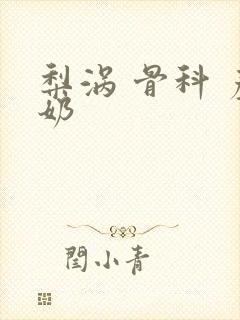 梨涡 骨科
奶
闫小青